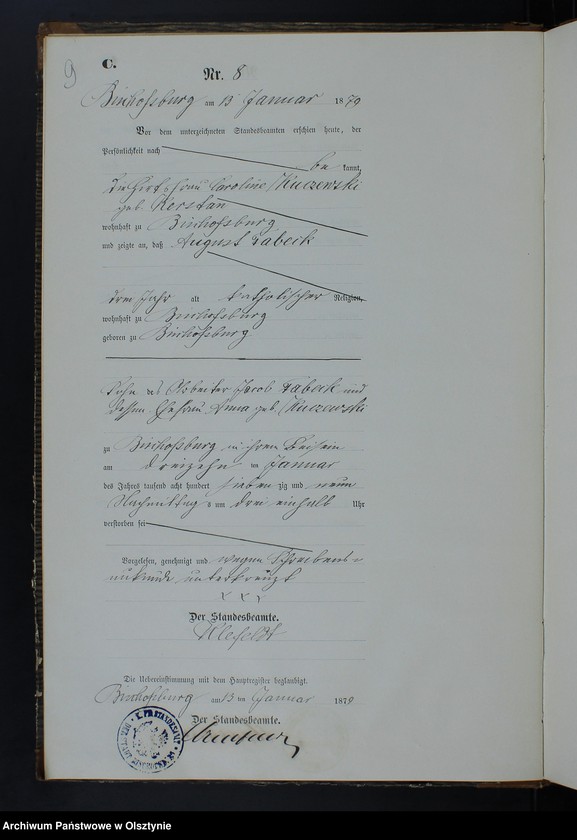 9
C.
Nr. 8
Bischofsburg am 13 Januar 1879
Vor dem unterzeichneten Standesbeamten erschien heute, der
Persönlichkeit nach
be kannt,
die Hirtsfrau Caroline Kuczewski
geb. Korstan
wohnhaft zu Bischofsburg
und zeigte an, daß August Labeck
drei Jahr alt katholischer Religion,
wohnhaft zu Bischofsburg
geboren zu Bischofsburg
Sohn des Arbeiter Jacob Labeck und
dessen Ehefrau Anna geb. Kuczewski
zu Bischofsburg in ihrem Beisein
am dreizehn ten Januar
des Jahres tausend acht hundert sieben zig und neun
Nachmittag s um drei einhalb Uhr
verstorben sei
Vorgelesen, genehmigt und wegen Schreibens=
unkunde unterkreuzt
x x x
Der Standesbeamte.
Die Uebereinstimmung mit dem Hauptregister beglaubigt.
Bischofsburg am 13 ten Januar 1879
Der Standesbeamte.
Archiwum Państwowe w Olsztynie